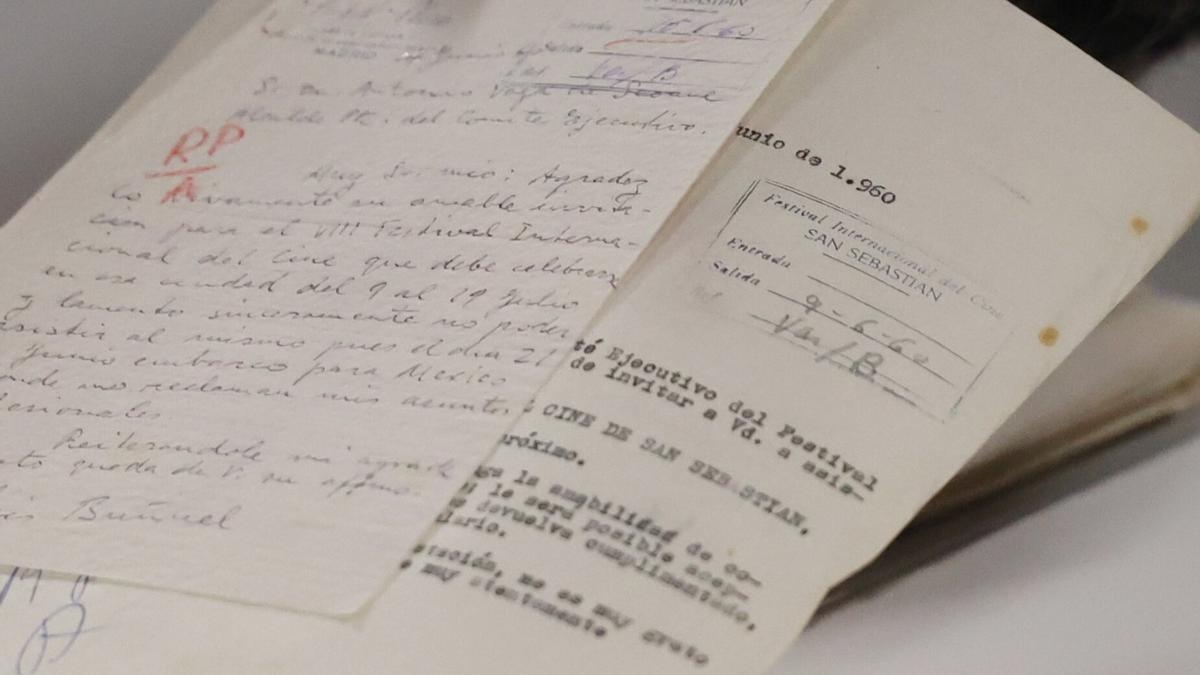 SEBASTIAN
Entrada 15-6-60
Salida
Var/B
MADRID
Sr. Dn. Antonio Vega de Seoane
Alcalde Pte. del Comité Ejecutivo.
RP
A
Muy Sr. mio: Agradez
co vivamente su amable invita-
ción para el VIII Festival Interna-
cional del Cine que debe celebrarse
en esa ciudad del 9 al 19 Julio
y lamento sinceramente no poder
asistir al mismo pues el dia 21
Junio embarco para Mexico
onde me reclaman mis asuntos
fesionales.
Reiterandole mi agrade
to queda de V. su afmo.
is Buñuel
unio de 1.960
Festival Internacional del Cine
SAN SEBASTIAN
Entrada
Salida 9-6-60
Ref. Var/B
té Ejecutivo del Festival
de invitar a Vd. a asis-
CINE DE SAN SEBASTIAN,
próximo.
ga la amabilidad de co-
i le será posible acep-
devuelva cumplimentado,
lario.
stación, me es muy grato
muy atentamente